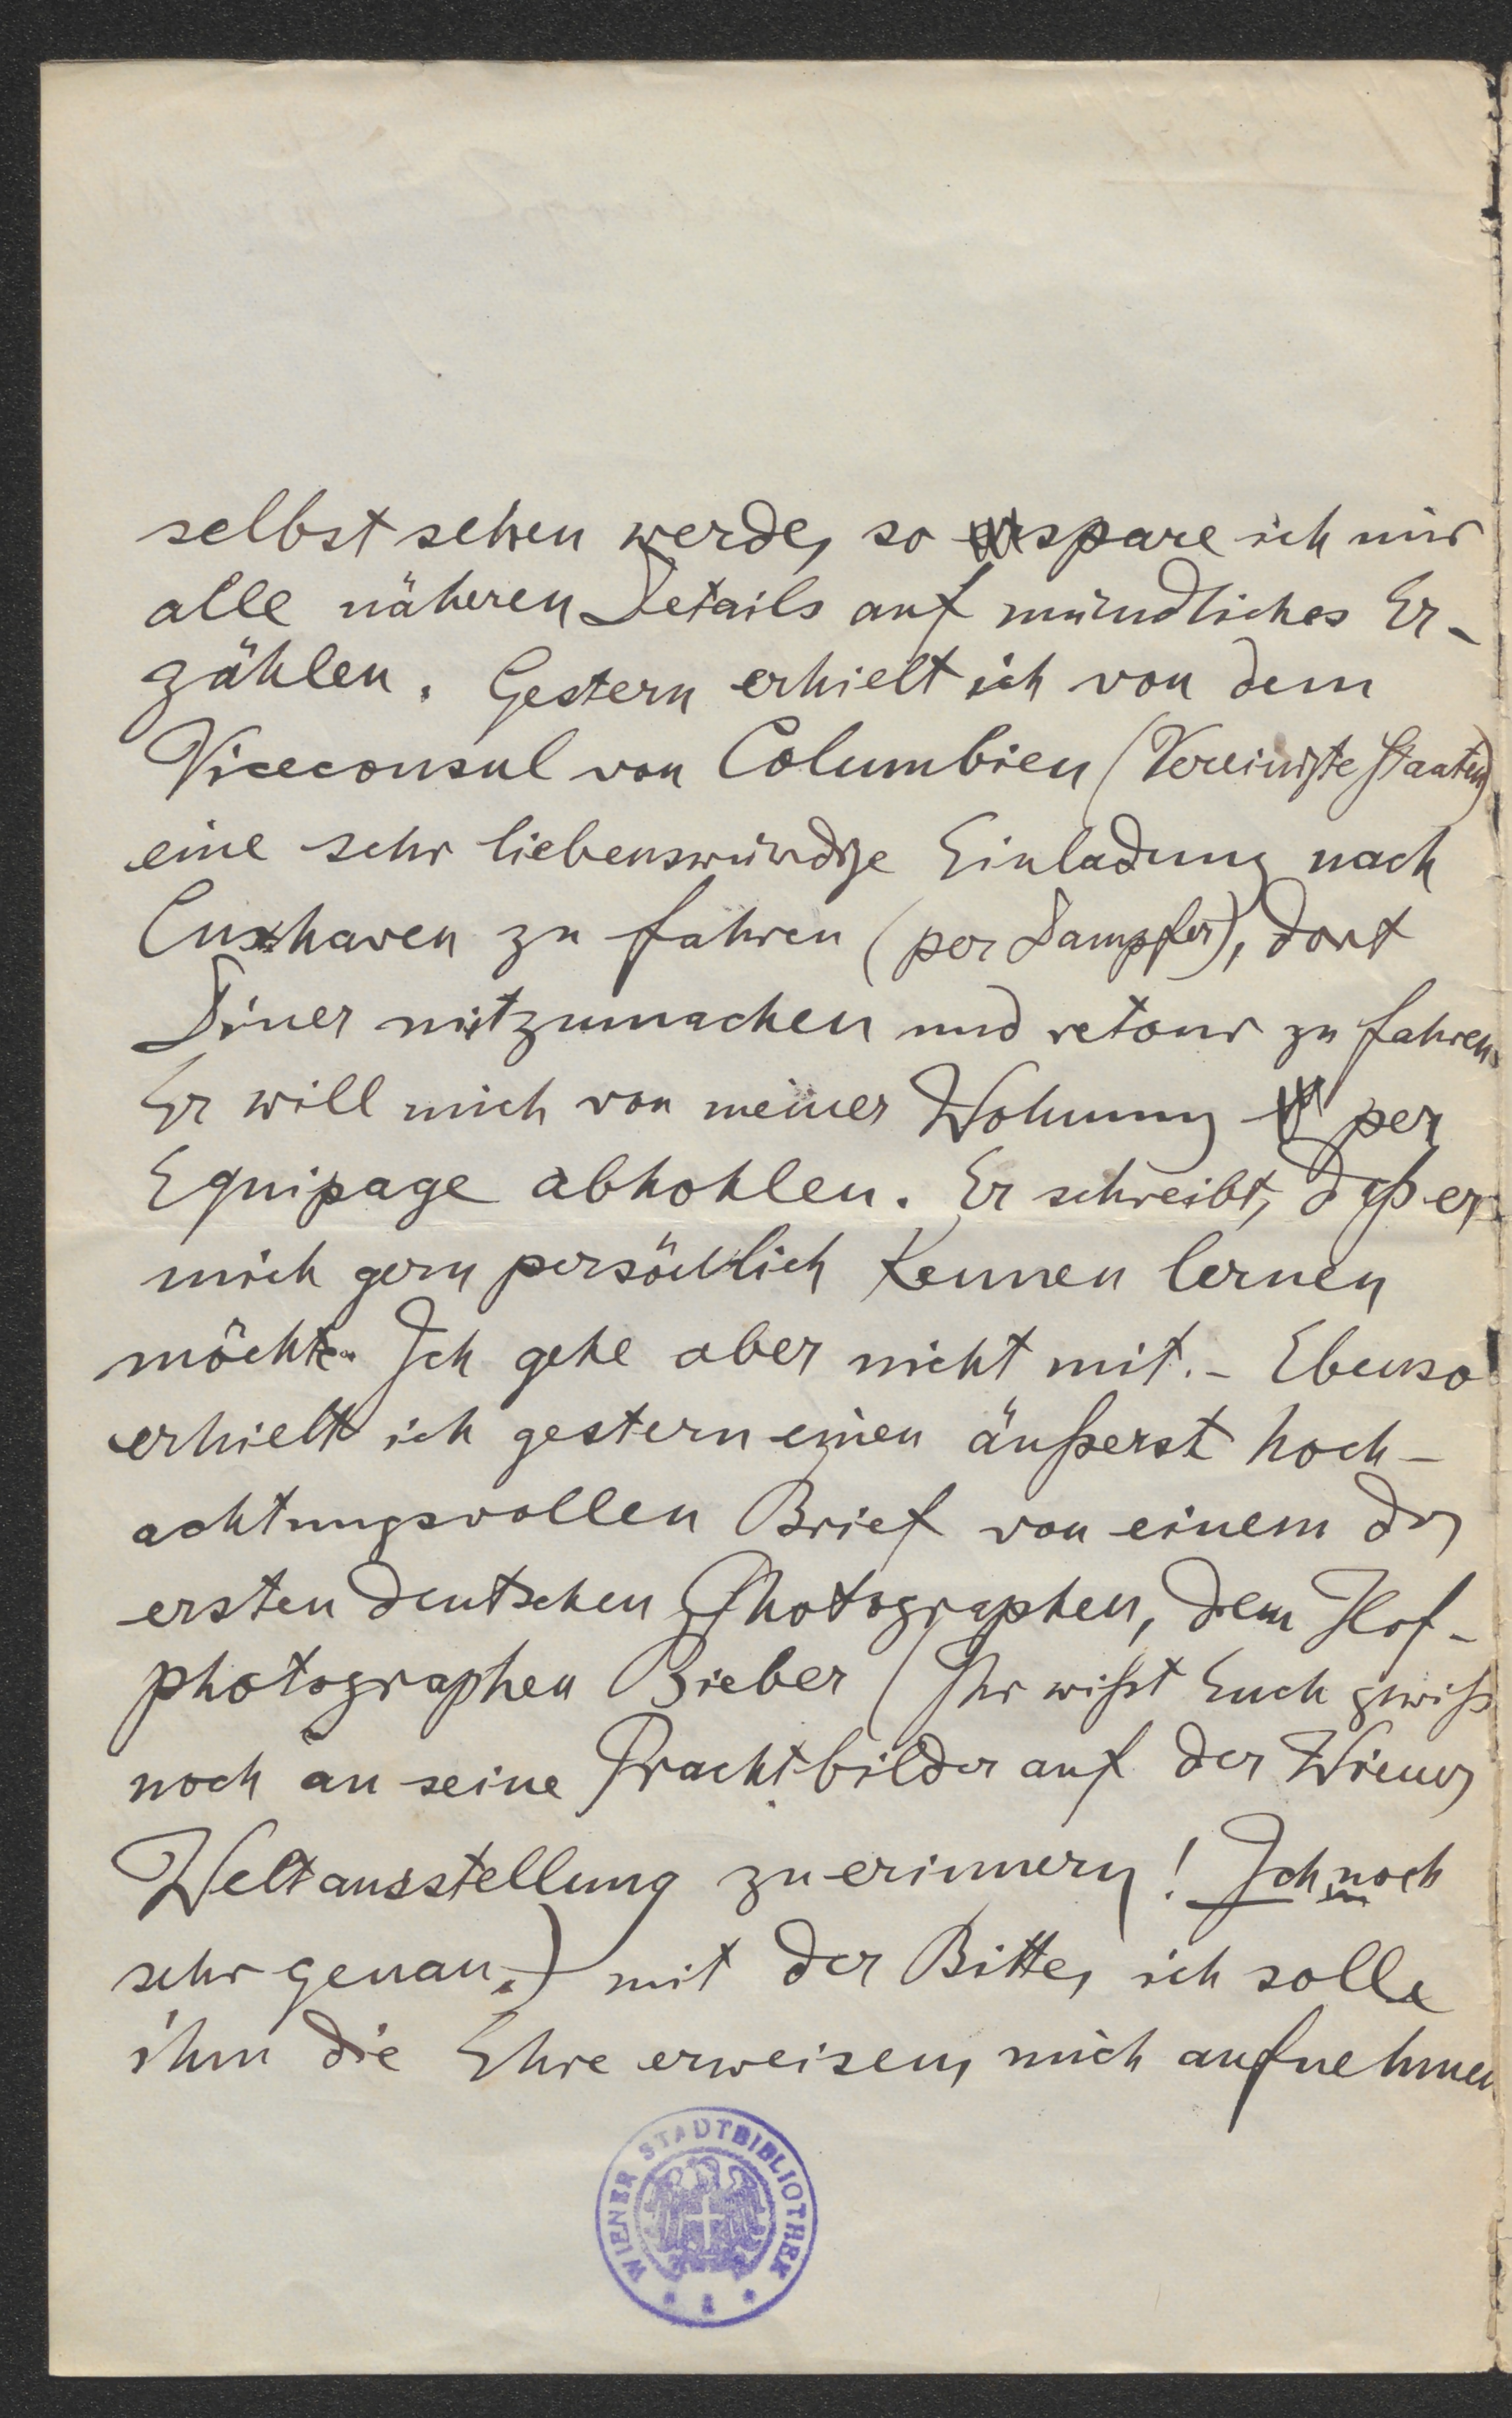 selbst sehen werde, so spare ich mir
alle näheren Details auf mündliches Er-
zählen. Gestern erhielt ich von dem
Viceconsul von Columbien (Vereinigte Staaten)
eine sehr liebenswürdige Einladung nach
Cuxhaven zu fahren (per Dampfer), dort
Diner mitzumachen und retour zu fahren.
Er will mich von meiner Wohnung per
Equipage abhohlen. Er schreibt, daß er
mich gern persönlich kennen lernen
möchte. Ich gehe aber nicht mit. - Ebenso
erhielt ich gestern einen äußerst hoch-
achtungsvollen Brief von einem der
ersten deutschen Photographen, dem Hof-
photographen Bieber (Ihr wißt Euch gewiß
noch an seine Prachtbilder auf der Wiener
Weltausstellung zu erinnern! Ich noch
sehr genau.) mit der Bitte, ich solle
ihm die Ehre erweisen, mich aufnehmen
WIENER STADTBIBLIOTHEK